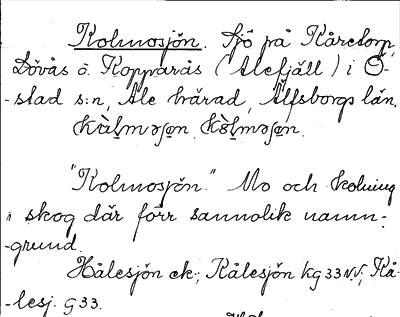 Kolmosjön. Sjö på Kåretorp,
Dövås o. Kopparås (Alefjäll) i Ö-
-stad s:n, Ale härad, Älfsborgs län.
"Kolmosjön." Mo och kolning
i skog där förr sannolik namn-
-grund.
Hålesjön ek.; Kålesjön KG33 NV; Kå-
-lesj. G33.